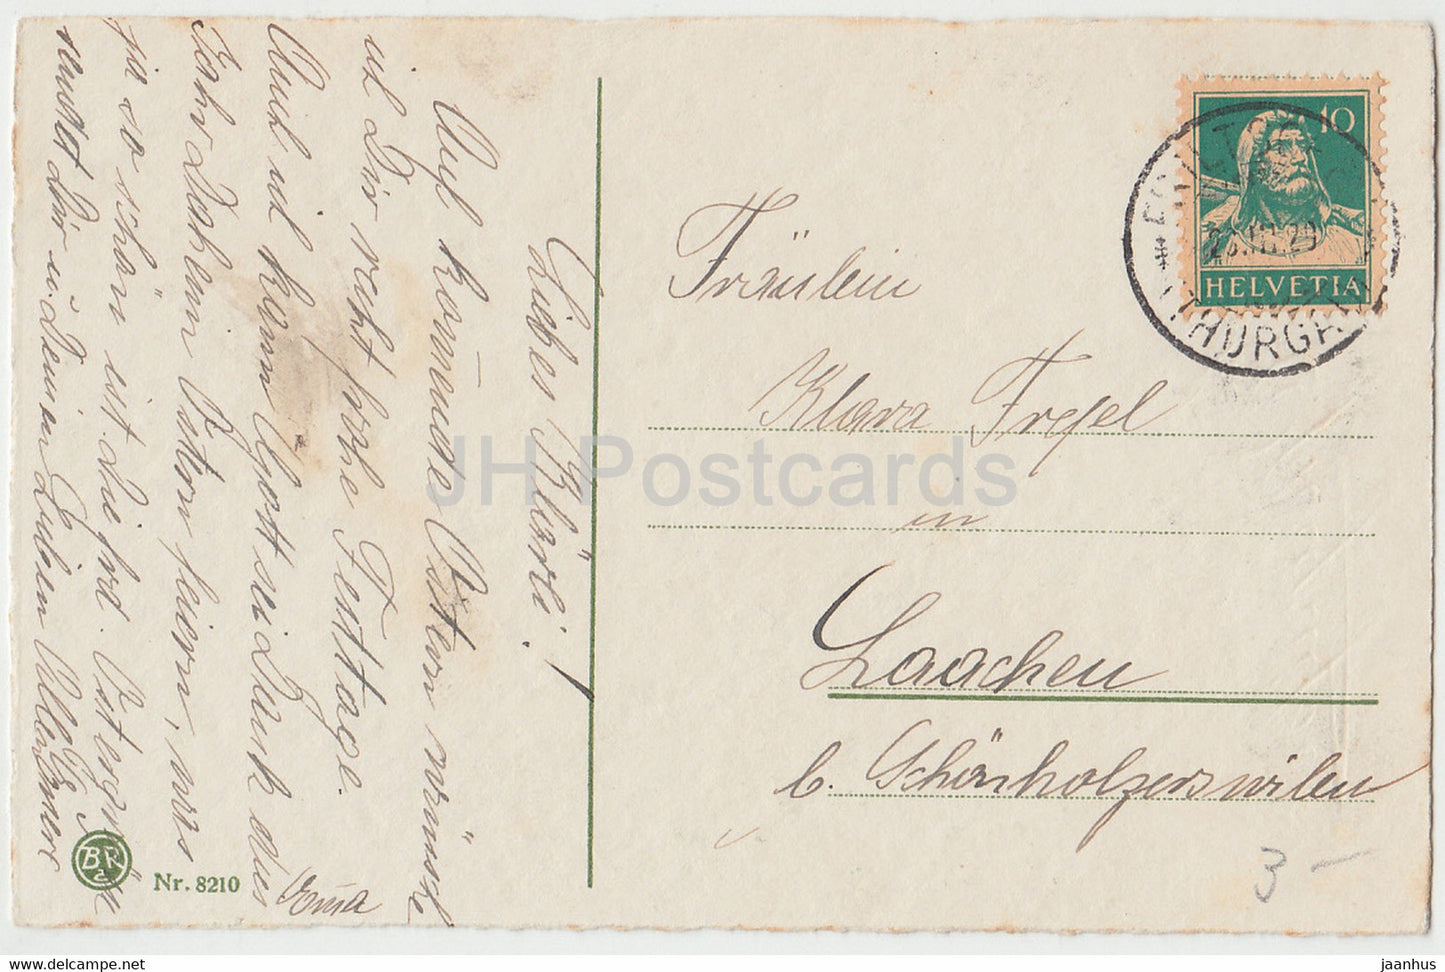 Liebes Klärli!
Auf kommende Ostern wünsche
ich Dir recht frohe Festtage.
Auch ich kann Gott sei Dank dies
Jahr Daheim Ostern feiern, was
ja so schön ist. Die frd. Ostergrüsse
sendet Dir u. Deinen Lieben Allen
Emma
Nr. 8210
BR
Fräulein
Klara Frefel
in
Laachen
b. Schönholzerswilen
10
HELVETIA
THURGAU
3 -
JH Postcards
www.delcampe.net
jaanhus